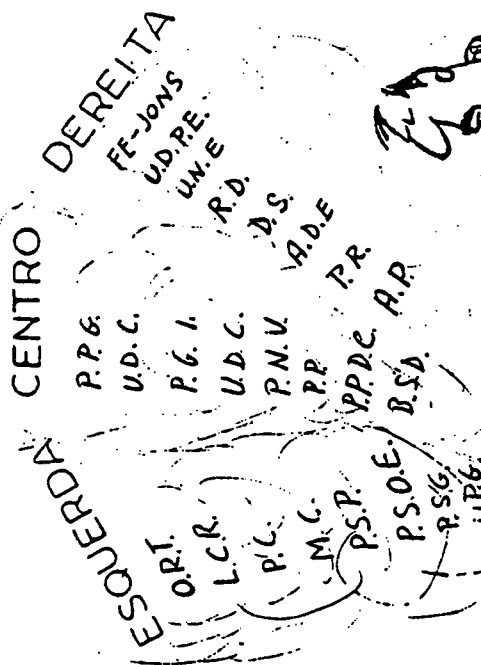 ESQUERDA
O.R.T.
L.C.R.
P.C.
M.C.
P.S.P.
P.S.O.E.
P.S.G.
U.P.G.
CENTRO
P.P.G.
U.D.C.
P.G.I.
U.D.C.
P.N.V.
P.P.
P.P.D.C.
B.S.D.
DEREITA
FE-JONS
U.D.P.E.
U.N.E
R.D.
D.S.
A.D.E
P.R.
A.P.